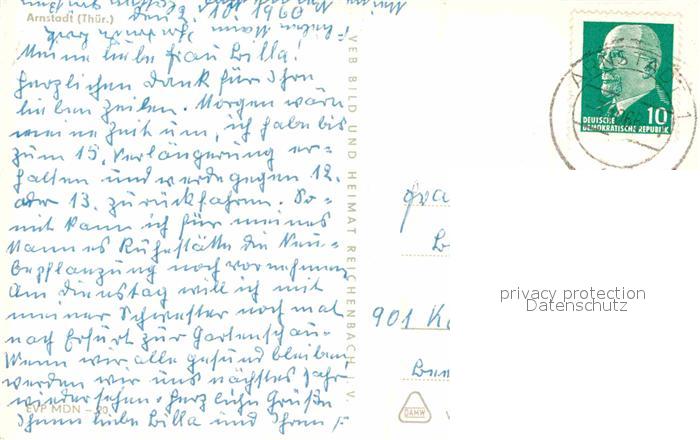 Arnstadt (Thür.)
den 2. 10. 1966
Meine liebe Frau Billa!
Herzlichen Dank für Ihre
lieben Zeilen. Morgen wäre
meine Zeit um, ich habe bis
zum 15. Verlängerung er-
halten und werde gegen 12.
oder 13. zurückfahren. So-
mit kann ich für meines
Mannes Ruhestätte die Neu-
bepflanzung noch vornehmen.
Am Dienstag will ich mit
meiner Schwester noch mal
nach Erfurt zur Gartenschau.
Wenn wir alle gesund bleiben,
werden wir uns nächstes Jahr
wiedersehen. Herzliche Grüße
Ihnen liebe Billa und Ihrem
EVP MDN –.20
VEB BILD UND HEIMAT REICHENBACH I. V.
ARNSTADT 1
10
DEUTSCHE
DEMOKRATISCHE REPUBLIK
901
privacy protection
Datenschutz
DAMW
V